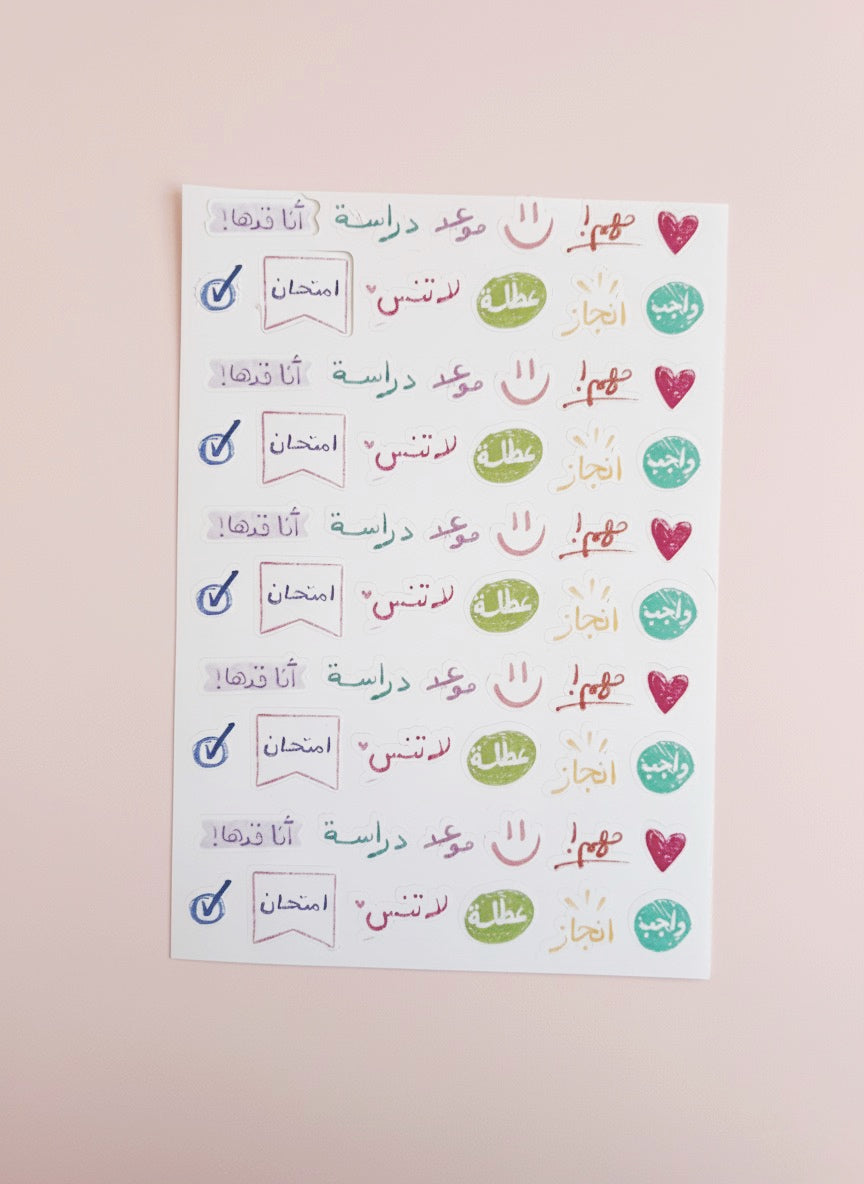 مهم! موعد دراسة أنا قدها!
واجب انجاز عطلة لا تنس امتحان
مهم! موعد دراسة أنا قدها!
واجب انجاز عطلة لا تنس امتحان
مهم! موعد دراسة أنا قدها!
واجب انجاز عطلة لا تنس امتحان
مهم! موعد دراسة أنا قدها!
واجب انجاز عطلة لا تنس امتحان
مهم! موعد دراسة أنا قدها!
واجب انجاز عطلة لا تنس امتحان